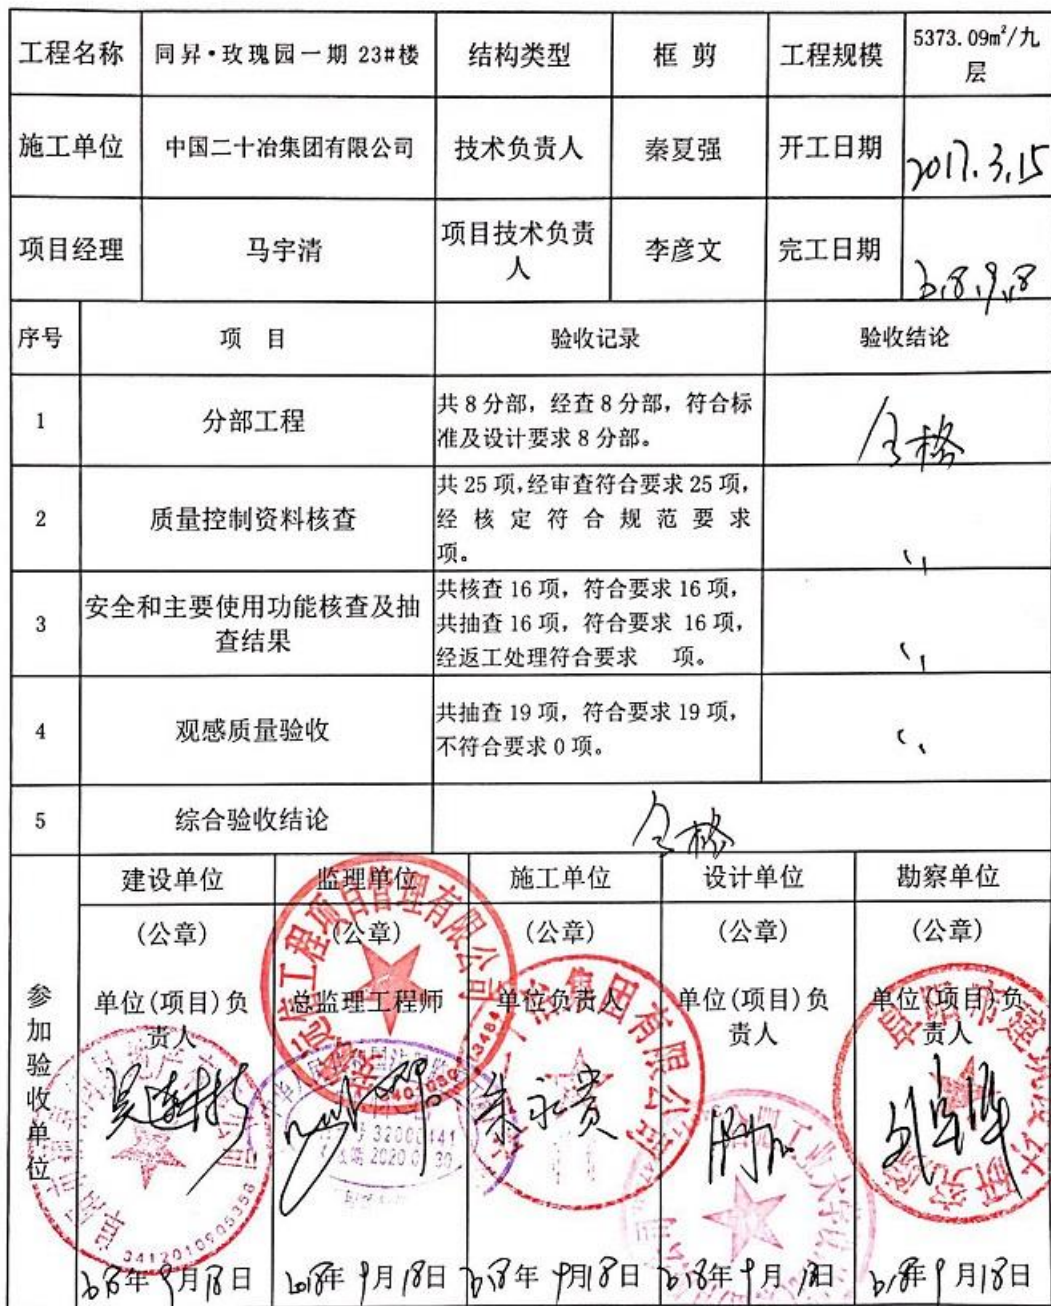 工程名称 同昇·玫瑰园一期 23#楼 结构类型 框 剪 工程规模 5373.09㎡/九
层
施工单位 中国二十冶集团有限公司 技术负责人 秦夏强 开工日期 2017.3.15
项目经理 马宇清 项目技术负责
人 李彦文 完工日期 2018.9.18
序号 项 目 验收记录 验收结论
1 分部工程 共 8 分部，经查 8 分部，符合标
准及设计要求 8 分部。 合格
2 质量控制资料核查 共 25 项,经审查符合要求 25 项，
经核定符合规范要求
项。 〃
3 安全和主要使用功能核查及抽
查结果 共核查 16 项，符合要求 16 项，
共抽查 16 项，符合要求 16 项，
经返工处理符合要求 项。 〃
4 观感质量验收 共抽查 19 项，符合要求 19 项，
不符合要求 0 项。 〃
5 综合验收结论 合格
参加验收单位
建设单位 监理单位 施工单位 设计单位 勘察单位
(公章) (公章) (公章) (公章) (公章)
单位(项目)负
责人 总监理工程师 单位负责人 单位(项目)负
责人 单位(项目)负
责人
工程项目管理有限公司
集团有限公司
朱永贵
3412010905358
2018年9月18日 2018年9月18日 2018年9月18日 2018年9月18日 2018年9月18日